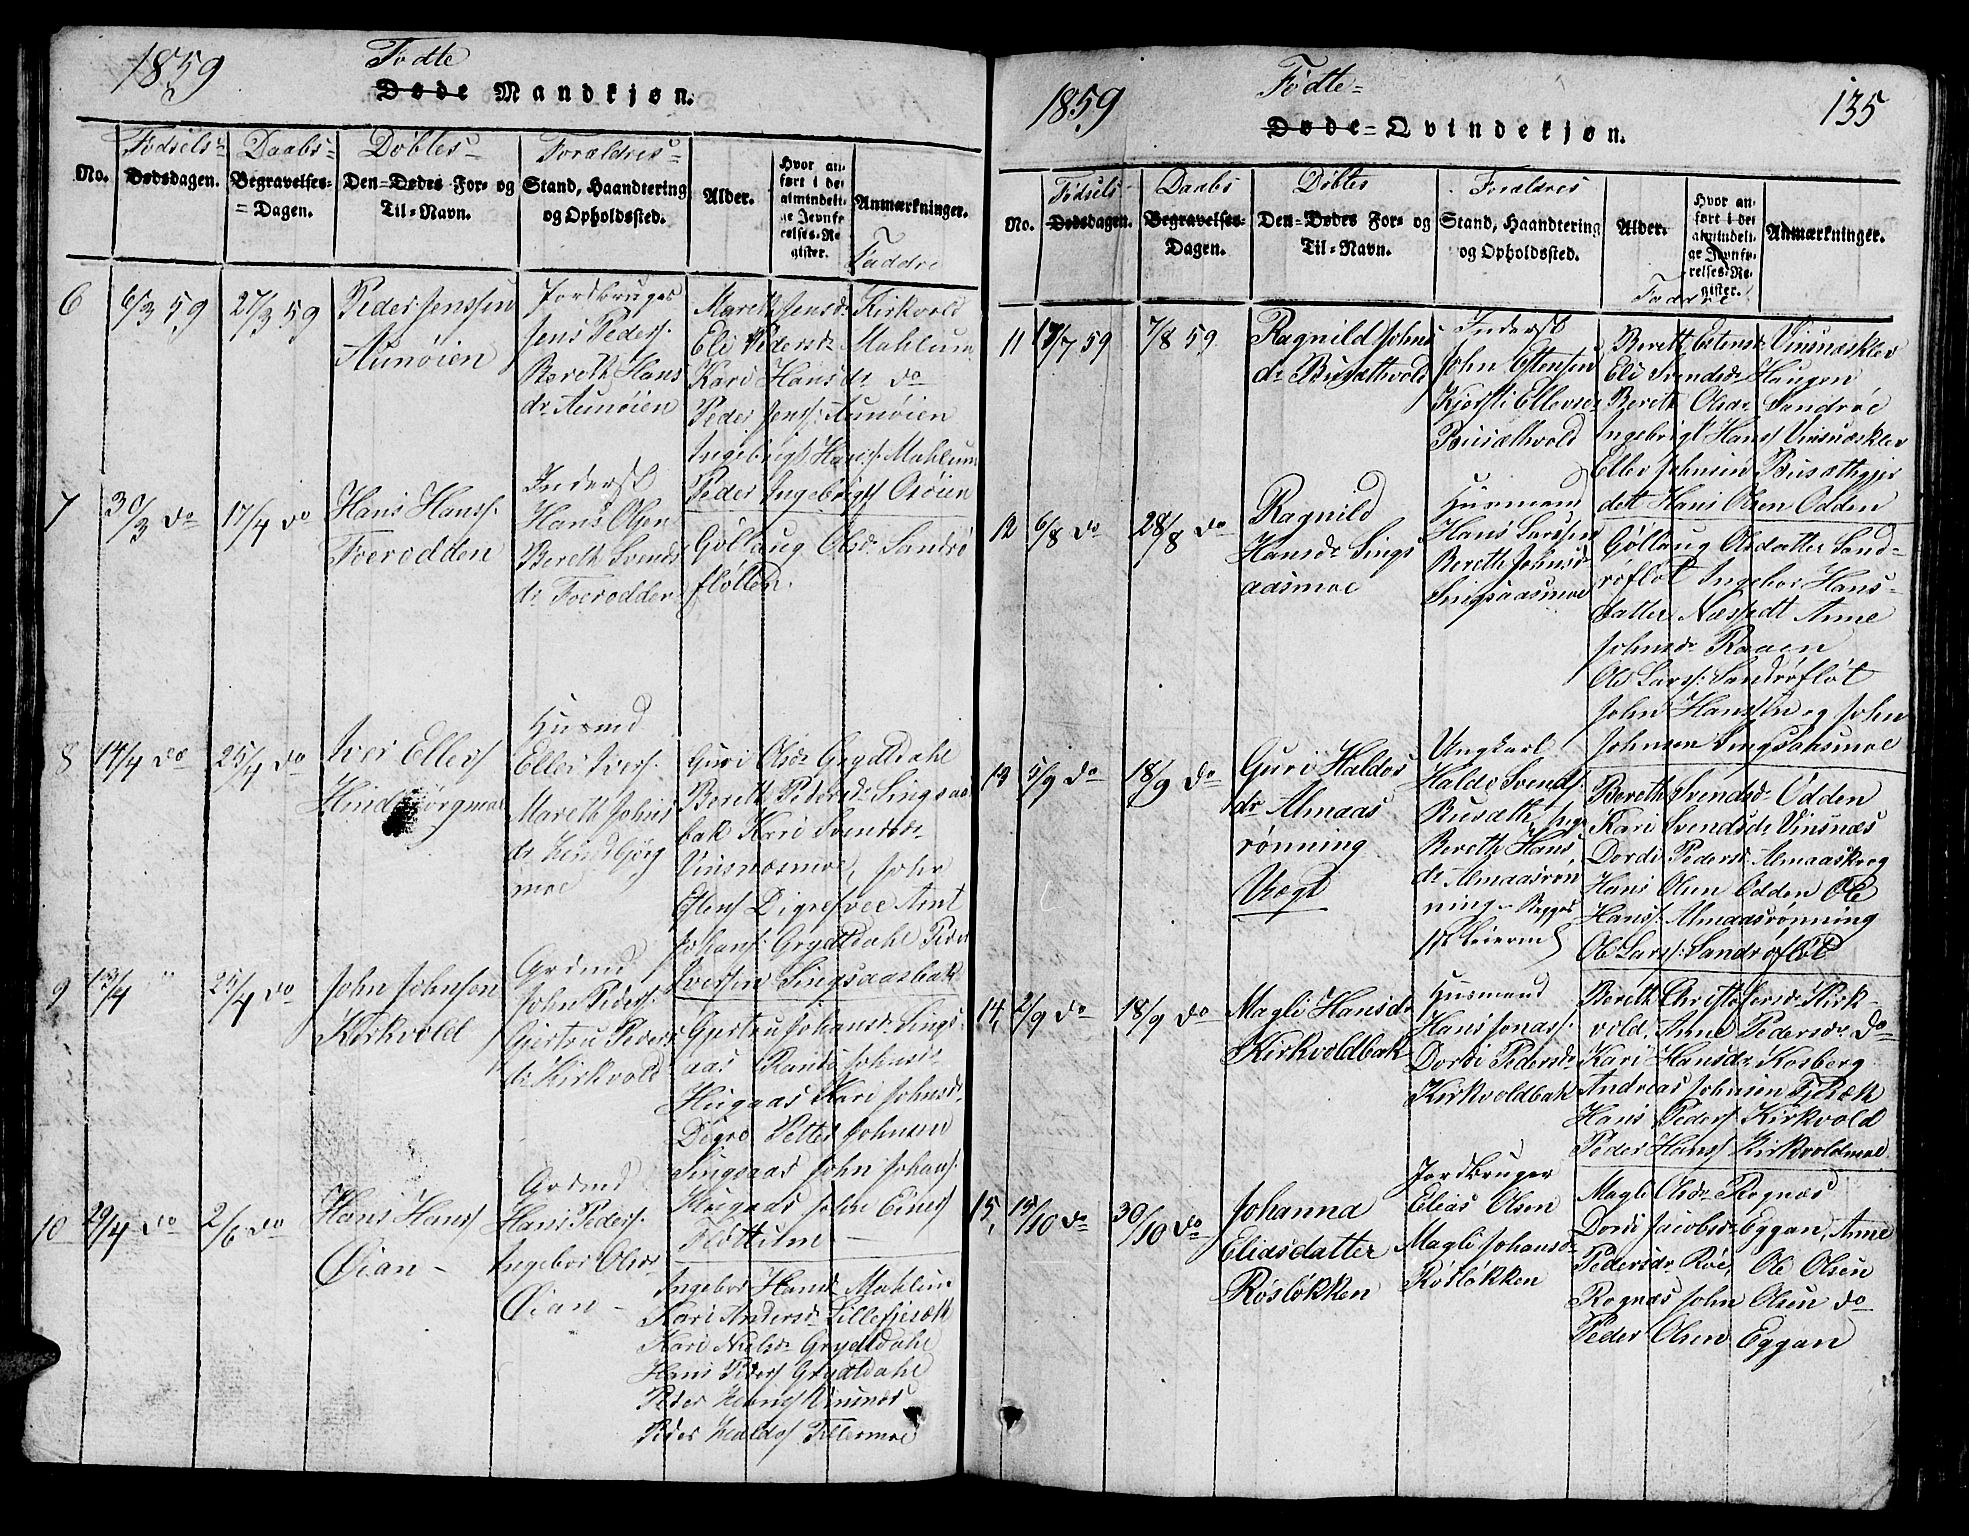 1859 Fødte
Døde Mandkjøn.
Fødsels= Daabs= Døbtes= Forældres=
No. Dødsdagen. Begravelses=Dagen. Den Dødes For- og Til-Navn. Stand, Haandtering og Opholdssted. Alder. Hvor anført i det almindelige Jevnførelses-Register. Anmærkninger.
Faddre
6 6/3 59 27/3 59 Peder Jenssen
Aunøien
Jordbruger
Jens Peders.
Bereth Hans
dr Aunøien
Mareth Jensdr Kirkvold
Eli Pedersdr Mahlum
Kari Hansdr do
Peder Jens. Aunøien
Ingebrigt Hans. Mahlum
Peder Ingebrigts Osøien
7 30/3 do 17/4 do Hans Hans.
Foerodden
Inderst
Hans Olsen
Bereth Svends
dr Foerodden
Göllaug Olsdr Sandrö
fløtten.
8 14/4 do 25/4 do Iver Ellefs
Hindbjørgmoe
Husmd
Ellef Ivers.
Mareth Johns
dr Hindbjörg
moe
Guri Olsdr Grydtdahl
Bereth Pedersdr Singsaas
bak Kari Svendsdr
Vinsnæsmoe, John
Estens Digre
Johans. Grydtdahl Peder
Iversen Singsaasbak
9 13/4 " 25/4 do John Johnsen
Kirkvold
Grdmd
John Peders.
Gjertru Peders
dr Kirkvold
Gjertru Johansdr Sings
aas Randi Johnsdr
Hugaas Kari Johnsdr
Digre Petter Johnsen
Singsaas John Johans.
Hugaas John Einers
Flöttum
10 29/4 do 2/6 do Hans Hans
Øian
Grdmd
Hans Peders.
Ingebor Olsdr
Øian
Ingebor Hansdr Mahlum
Kari Andersdr Lillefjesæth
Kari Nielsdr Grydtdahl
Hans Peders Grydtdahl
Peder Hans Vinsnæs
Peder Haldos Tillermoe
1859 Fødte= 135
Døde=Qvindekjøn.
Fødsels- Daabs Døbtes Forældres
No. Dødsdagen. Begravelses-Dagen. Den-Dødes For- og Til-Navn. Stand, Haandtering og Opholdssted. Alder. Hvor anført i det almindelige Jevnførelses-Register. Anmærkninger.
Faddre
11 17/7 59 7/8 59 Ragnild Johns
dr Busæthvold
Inderst
John Estensen
Kjersti Ellevsdr
Busæthvold
Bereth Estensdr Vinsnæsklev
Eli Svendsdr Haugen
Bereth Olsdr Sandrøe
Ingebrigt Hans Vinsnæsklev
Ellev Johnsen Busæthgjer
dett Hans Olsen Odden
12 6/8 do 28/8 do Ragnild
Hansdr Sings
aasmoe
Husmand
Hans Larssen
Bereth Johnsdr
Singsaasmoe
Göllaug Olsdatter Sand=
røfløt Ingebor Hans-
datter Næstedt Anne
Johnsdr Raaen
Ole Lars. Sandrøfløt
John Hanssen og John
Johnsen Singsaasmoe
13 5/9 do 18/9 do Guri Haldos
dr Almaas
rønning
Uægt
Ungkarl
Haldo Svends.
Busæth,
Bereth Hans
dr Almaasrøn
ning
Bereth Svendsdr Odden
Kari Svendsdr Vinsnæs
Dordi Pedersdr Almaaskrog
Hans Olsen Odden Ole
Hans. Almaasrønning
Ole Lars. Sandrøfløt
14, 2/9 do 18/9 do Magli Hansdr
Kirkvoldbak
Husmand
Hans Jonas.
Dordi Pedersdr
Kirkvoldbak
Bereth Christofersdr Kirk-
vold, Anne Pedersdr do
Kari Hansdr Kosberg
Andreas Johnsen Fjesæth
Hans Peders Kirkvold
Peder Hans Kirkvoldmoe
15, 15/10 do 30/10 do Johanna
Eliasdatter
Røsløkken
Jordbruger
Elias Olsen
Magli Johansdr
Røsløkken
Magli Olsdr Rognæs
Dordi Jacobsdr Eggan, Anne
Pedersdr Røe, Ole Olsen
Rognæs John Olsen do
Peder Olsen Eggan